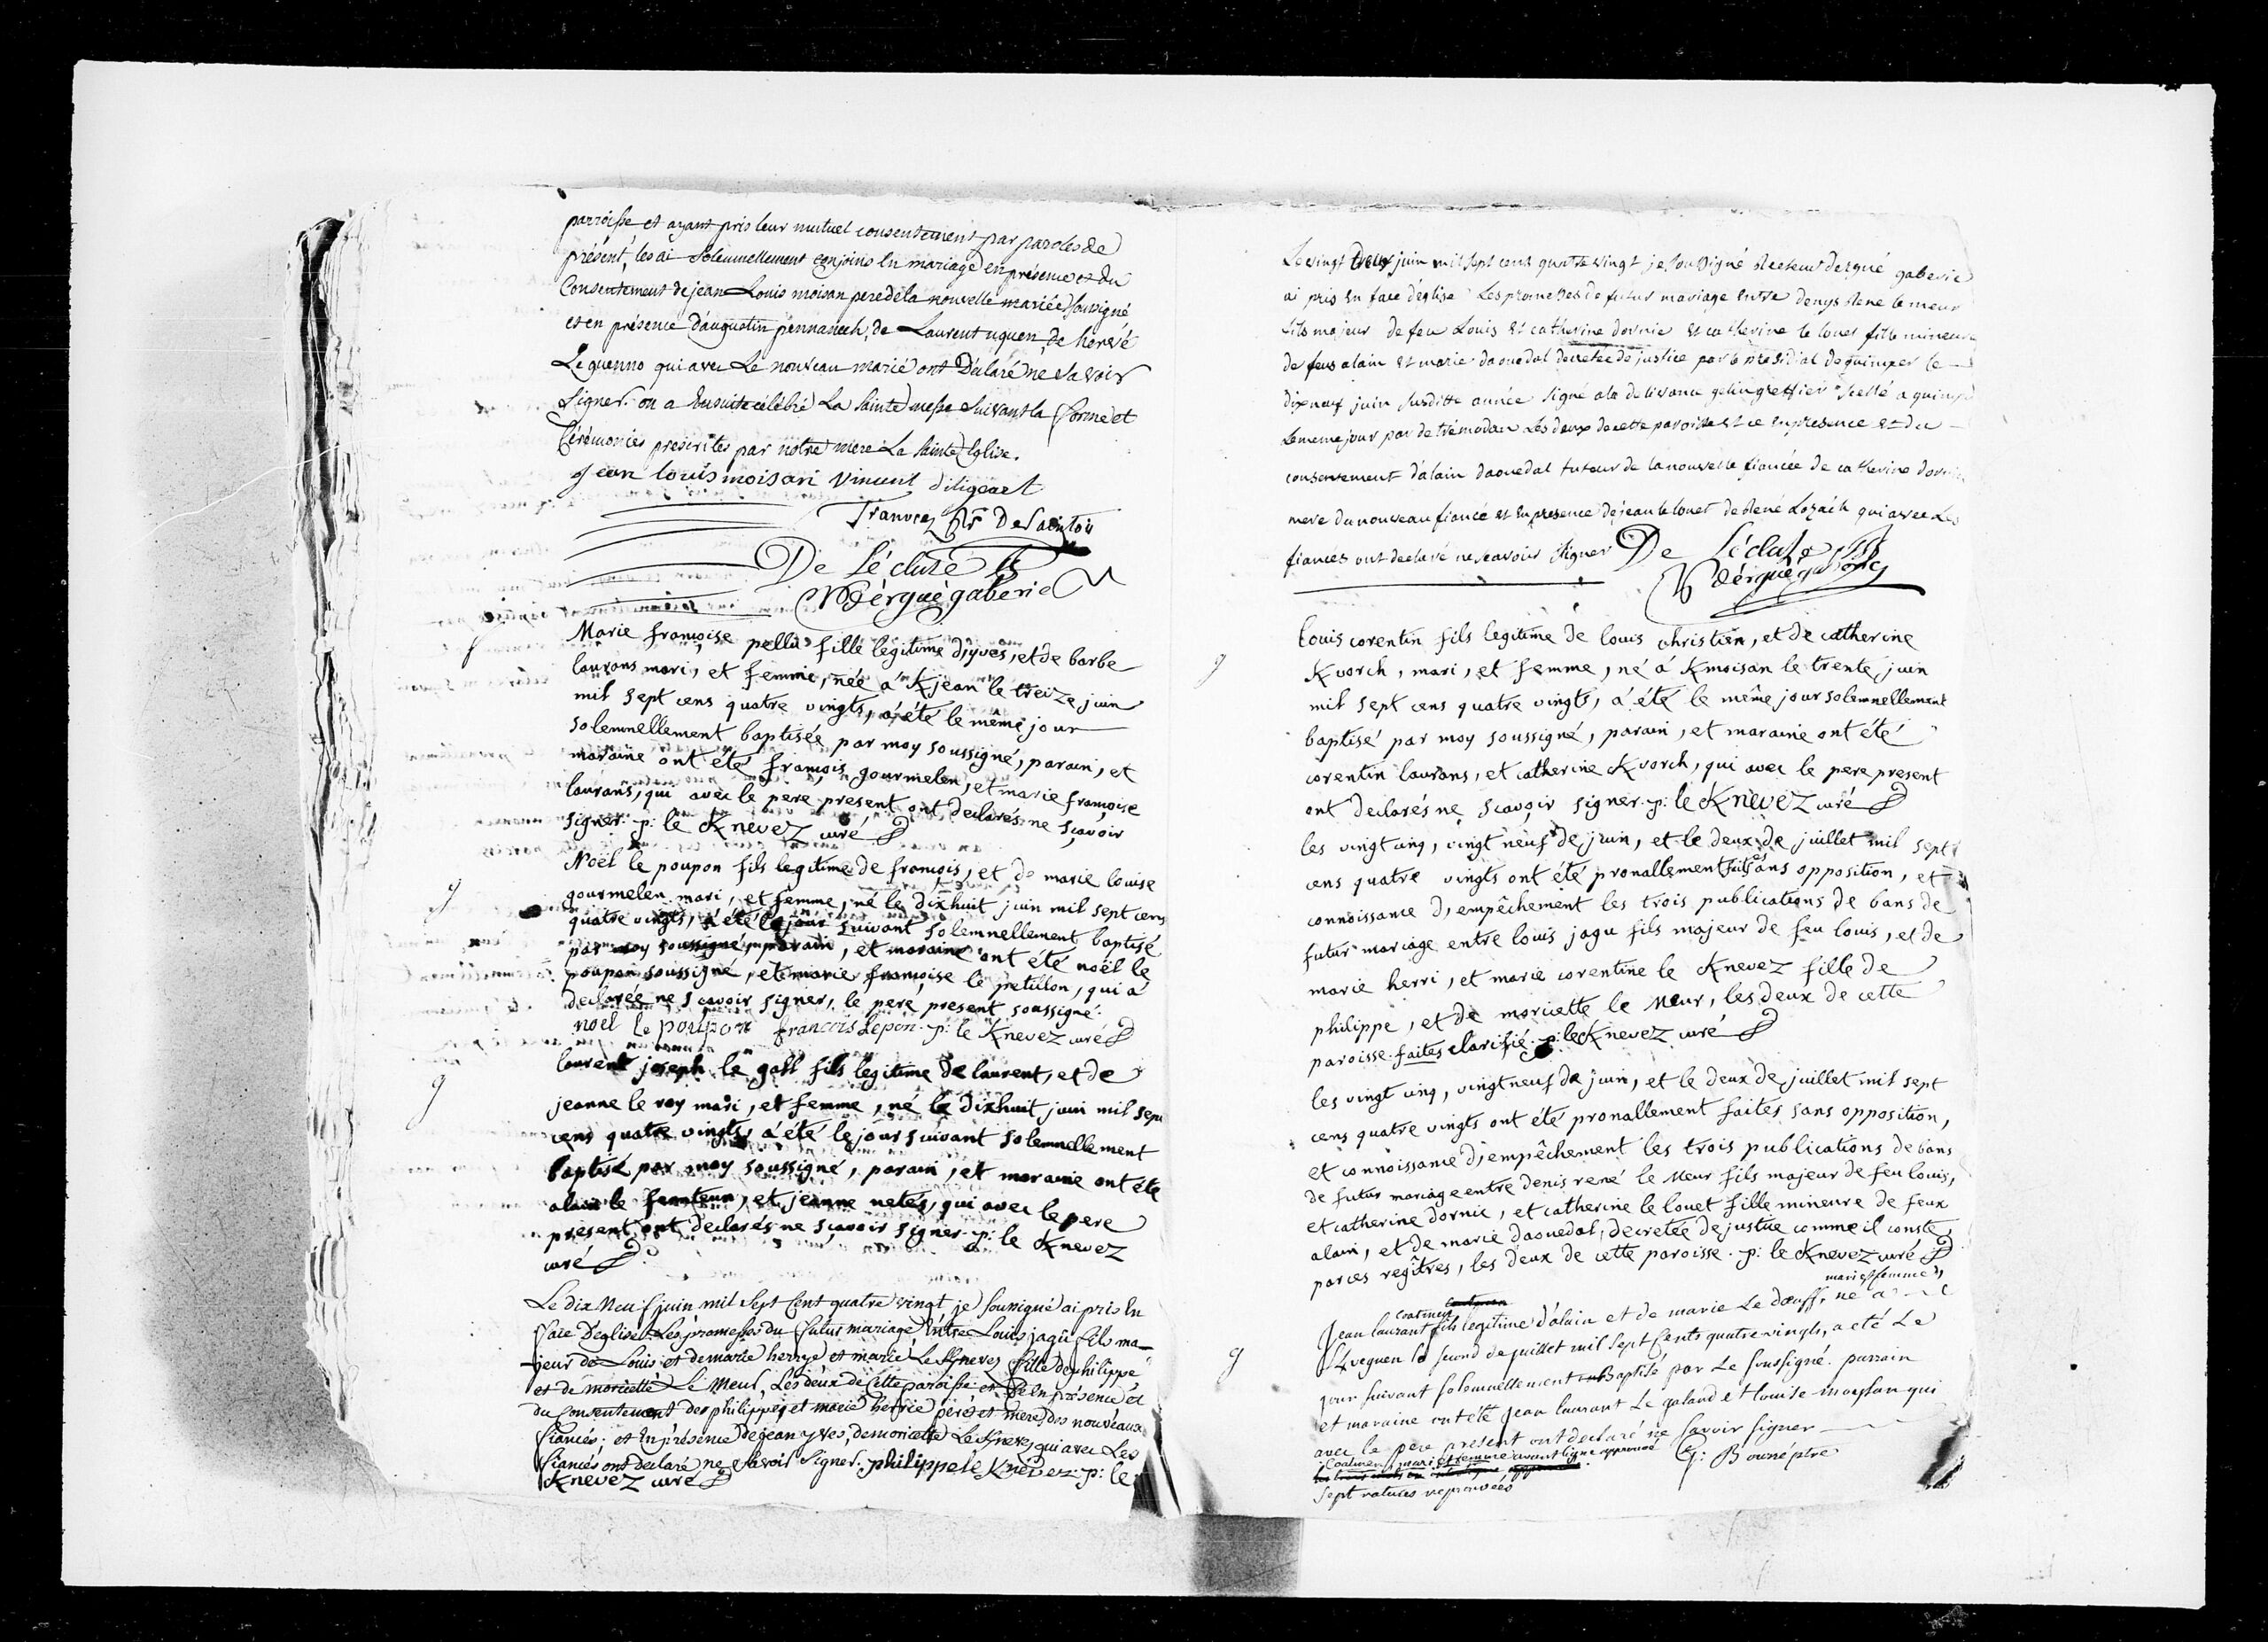 parroisse et ayant pris leur mutuel consentement par paroles de
présent, les ai solemnellement conjoins en mariage en présence et du
Consentement de jean Louis moisan pere de la nouvelle mariée soussigné
et en présence d'augustin pennanech, de Laurent uguen, de hervé
Le guenno qui avec Le nouveau marié ont Déclaré ne savoir
signer. on a ensuite célébré La sainte messe suivant la forme et
Cérémonies prescrites par notre mere La sainte Eglise.
jean louis moisan vincent
De Léclusé
R dérgué gaberic
Marie françoise pellu fille legitime d'yves, et de barbe
laurans mari, et femme, née a Kjean le treize juin
mil sept cens quatre vingts, a été le même jour
solemnellement baptisée par moy soussigné, parain, et
maraine ont été françois gourmelen, et marie françoise
laurans, qui avec le pere present ont declarés ne sçavoir
signer. p: le Knevez curé
Noël le poupon fils legitime de françois, et de marie louise
gourmelen mari, et femme, né le dixhuit juin mil sept cens
quatre vingts, a été le jour suivant solemnellement baptisé
par moy soussigné, parain, et maraine ont été noël le
poupon soussigné, et marie françoise le petillon, qui a
declarée ne sçavoir signer, le pere present soussigné.
noel le poupon francois Lepon. p: le Knevez curé
laurent joseph le gall fils legitime de laurent, et de
jeanne le roy mari, et femme, né le dixhuit juin mil sept
cens quatre vingts, a été le jour suivant solemnellement
baptisé par moy soussigné, parain, et maraine ont été
alain le, et jeanne netés, qui avec le pere
present ont declarés ne sçavoir signer. p: le Knevez
curé
Le dix Neuf juin mil sept Cent quatre vingt, je soussigné ai pris en
face D'eglise Les promesses du futur mariage, entre Louis jagu fils ma-
-jeur de Louis et de marie herrye et marie Le Knevez fille de philippe
et de moricette Le Meur, Les deux de Cette paroisse et Ce en présence et
du Consentement des philippe, et marie herrie pere et mere des nouveaux
fiancés; et En présence de jean yves, de moricette Le Knevez qui avec Les
fiancés ont declaré ne savoir signer. philippe le Knevez. p: le
Knevez curé
Le vingt deux juin mil sept cens quatre vingt je soussigné Recteur dergué gaberic
ai pris en face d'eglise Les promesses de futur mariage entre denys René le meur
fils majeur de feu Louis et catherine dornic et catherine le louet fille mineure
de feus alain et marie daouedal decretée de justice par le presidial de quimper le
dix neuf juin susditte année signé a la delivrance gelin greffier scellé a quimper
le meme jour par de trémodan Les deux de cette paroisse et ce en presence et du
consentement d'alain daouedal tuteur de la nouvelle fiancée de catherine dornic
mere du nouveau fiancé et en presence de jean le louet de René Lozach qui avec Les
fiancés ont declaré ne scavoir signer De Léclusé
R dérgué gaberic
louis corentin fils legitime de louis christien, et de catherine
Kvorch, mari, et femme, né a Kmoisan le trente juin
mil sept cens quatre vingts, a été le même jour solemnellement
baptisé par moy soussigné, parain, et maraine ont été
corentin laurans, et catherine Kvorch, qui avec le pere present
ont declarés ne sçavoir signer. p: le Knevez curé
les vingt cinq, vingt neuf de juin, et le deux de juillet mil sept
cens quatre vingts ont été pronallement faits sans opposition, et
connoissance d'empêchement les trois publications de bans de
futur mariage entre louis jagu fils majeur de feu louis, et de
marie herri, et marie corentine le Knevez fille de
philippe, et de moricette le Meur, les deux de cette
paroisse. faites clarifié. p: le Knevez curé
les vingt cinq, vingt neuf de juin, et le deux de juillet mil sept
cens quatre vingts ont été pronallement faites sans opposition,
et connoissance d'empêchement les trois publications de bans
de futur mariage entre denis rené le Meur fils majeur de feu louis,
et catherine dornic, et catherine le louet fille mineure de feux
alain, et de marie daouedal, decretée de justice comme il conste
par ces regîtres, les deux de cette paroisse. p: le Knevez curé
mari et femme
Coatmen
Jean laurant fils legitime d'alain et de marie Le dœuff, né a
le second de juillet mil sept Cents quatre vingts, a eté Le
jour suivant solemnellement Baptisé par Le soussigné. parrain
et maraine ont été Jean laurant Le galand et louise moysan qui
avec le pere present ont declaré ne savoir signer
Coatmen mari et femme avant ligne approuvé G: Bourné ptre
sept ratures reprouvées